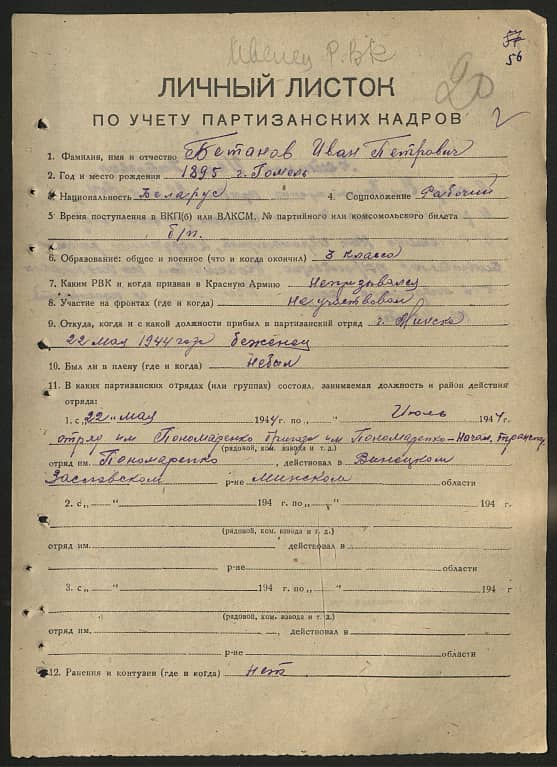 57
56
Ивенец РВК
20
ЛИЧНЫЙ ЛИСТОК
ПО УЧЕТУ ПАРТИЗАНСКИХ КАДРОВ
1. Фамилия, имя и отчество Бетанов Иван Петрович
2. Год и место рождения 1895 г. Гомель
3. Национальность Беларус 4. Соцположение Рабочий
5 Время поступления в ВКП(б) или ВЛКСМ, № партийного или комсомольского билета
б/п.
6. Образование: общее и военное (что и когда окончил) 3 класса
7. Каким РВК и когда призван в Красную Армию Непризывался
8. Участие на фронтах (где и когда) Не участвовал
9. Откуда, когда и с какой должности прибыл в партизанский отряд г. Минска
22 мая 1944 года беженец
10. Был ли в плену (где и когда) Небыл
11. В каких партизанских отрядах (или группах) состоял, занимаемая должность и район действия
отряда:
1. с „22" мая 1944 г. по „ " Июль 1944 г.
отряд им Пономаренко бригада им Пономаренко – Начал. транспор
(рядовой, ком. взвода и т. д.)
отряд им. Пономаренко, действовал в Ивенецком
Заславском р-не Минском области
2. с „ " 194 г. по „ " 194 г.
(рядовой, ком. взвода и т. д.)
отряд им. действовал в
р-не области
3. с „ " 194 г. по „ " 194 г
(рядовой, ком. взвода и т. д.)
отряд им. , действовал в
р-не области
12. Ранения и контузии (где и когда) нет